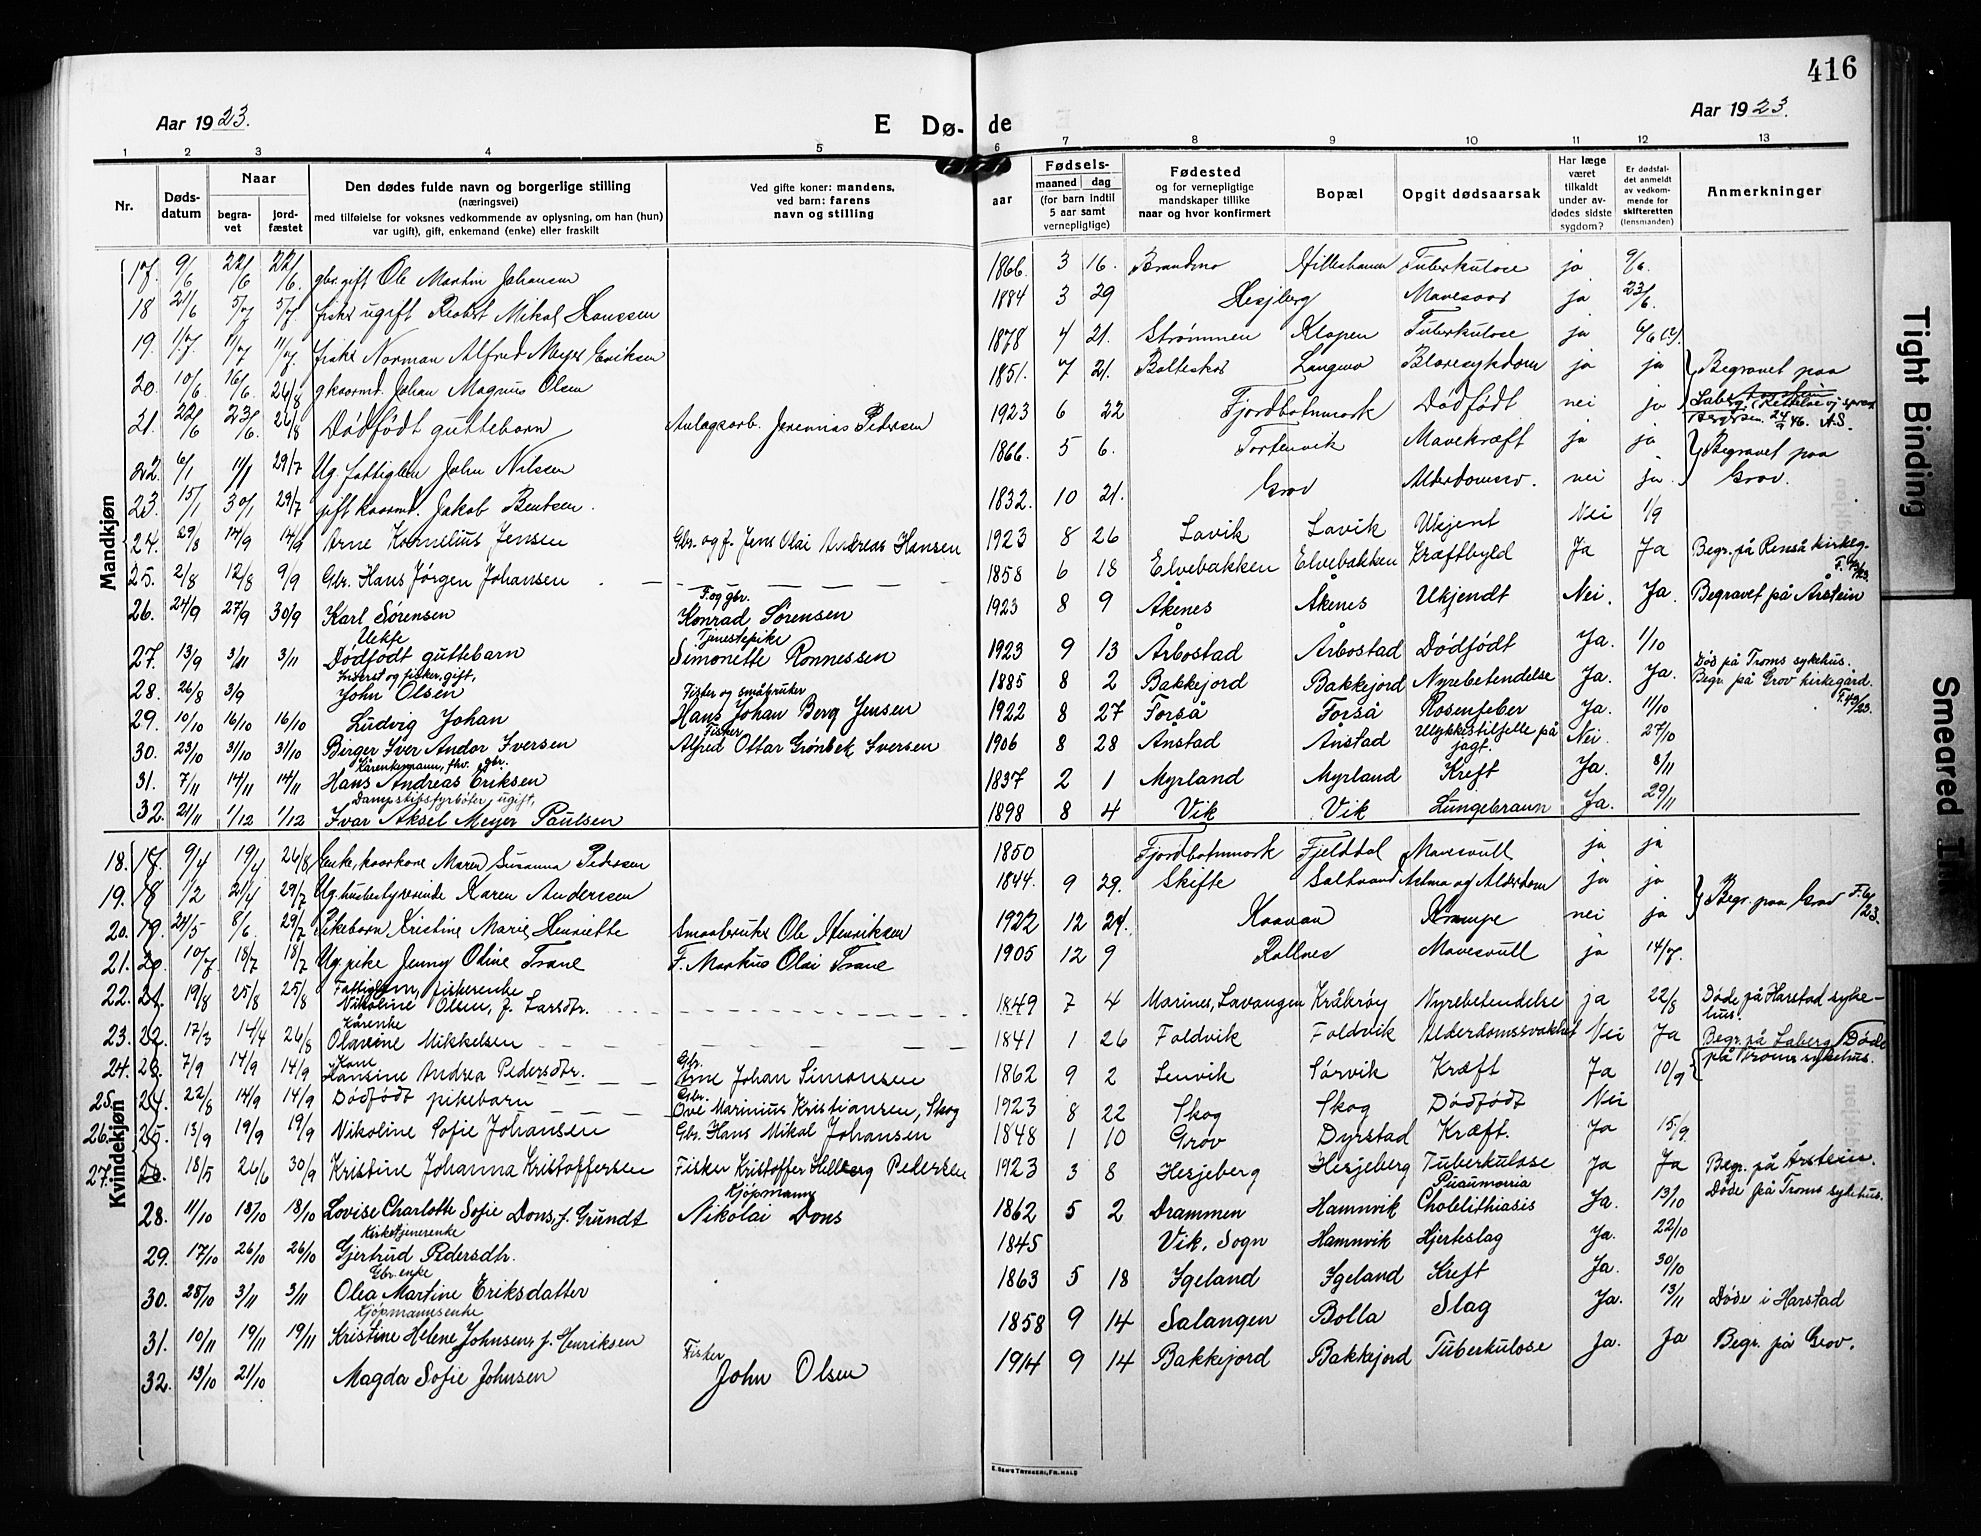 416
Aar 1923.
E Dø-
de
Aar 1923.
1 2 3 4 5 6 7 8 9 10 11 12 13
Nr.
Døds-
datum
Naar
begra-
vet
jord-
fæstet
Den dødes fulde navn og borgerlige stilling
(næringsvei)
med tilføielse for voksnes vedkommende av oplysning, om han (hun)
var ugift), gift, enkemand (enke) eller fraskilt
Ved gifte koner: mandens,
ved barn: farens
navn og stilling
aar
Fødsels-
maaned dag
(for barn indtil
5 aar samt
vernepligtige)
Fødested
og for vernepligtige
mandskaper tillike
naar og hvor konfirmert
Bopæl
Opgit dødsaarsak
Har læge
været
tilkaldt
under av-
dødes sidste
sygdom?
Er dødsfal-
det anmeldt
av vedkom-
mende for
skifteretten
(lensmanden)
Anmerkninger
Mandkjøn
17. 9/6 22/6 22/6. gbr. gift Ole Martin Johansen 1866. 3 16. Brandmo Hilleshamn Tuberkulose ja 9/6.
18 21/6 5/7 5/7. fisker ugift Peobst Mikal Hanssen 1884 3 29 Hesjberg Mavesaar ja 23/6.
19. 1/7. 11/7 11/7 fisker Norman Alfred Meyer Eriksen 1878 4 21. Strømmen Klopen Tuberkulose ja
20. 10/6 16/6. 26/8 gkaarmd. Johan Magnus Olsen 1851. 7 21. Bolteskar Langmo Blæresykdom ja ja Begravet paa
21. 22/6 23/6. 26/8 Dødfödt guttebarn Anlægsarb. Jeremias Pedersen 1923 6 22 Fjordbotnmark Dödfödt nei ja Laberg.
22. 6/1 11/1 29/7 Ug. fattiglem John Nilsen 1866. 5 6. Tortenvik Mavekræft ja ja Begravet paa
23. 15/1 30/1 29/7 gift kaarmd. Jakob Bentsen. 1832. 10 21. Grov Alderdomssv. nei ja. Grov.
24. 29/8 14/9 14/9 Arne Kornelius Jensen Gbr. og f. Jens Olai Andreas Hansen 1923 8 26 Lavik Lavik Ukjent Nei 1/9
25. 2/8 12/8 9/9 Gbr. Hans Jörgen Johansen 1858 6 18 Elvebakken Elvebakken Kræftbyld Ja Ja Begr. på Renså kirkeg.
F. og gbr.
26. 24/9 27/9 30/9 Karl Sørensen Konrad Sørensen 1923 8 9 Åkenes Åkenes Ukjendt Nei. Ja. Begravet på Årstein
Uekte Tjenestepike
27. 13/9 3/11 3/11 Dödfödt guttebarn Simonette Ronnessen 1923 9 13 Årbostad Årbostad Dödfödt Ja. 1/10
Inderst og fisker, gift, Død på Troms sykehus.
28. 26/8 3/9 John Olsen 1885 8 2 Bakkejord Bakkejord Nyrebetendelse Ja. Ja. Begr. på Grov kirkegård.
Fisker og småbruker
29. 10/10 16/10 16/10 Ludvig Johan Hans Johan Berg Jensen 1922 8 27 Forså Forså Rosenfeber Ja. 11/10
Fisker
30. 23/10 31/10 31/10 Birger Iver Andor Iversen Alfred Ottar Grönbek Iversen 1906 8 28 Ånstad Ånstad Ulykkestilfelle på jagt. Nei. 27/10
Kårenkemann, fhv. gbr.
31. 7/11 14/11 14/11 Hans Andreas Eriksen 1837 2 1 Myrland Myrland Kreft Ja. 8/11
Dampskibsfyrböter, ugift,
32. 21/11 1/12 1/12 Ivar Aksel Meyer Paulsen 1898 8 4 Vik Vik Lungebraun Ja. 29/11
Kvindekjøn
18. 17. 9/4 19/4 26/8 Enke, kaarkone Maren Susanna Pedersen 1850 Fjordbotnmark Fjelddal Mavesvull ja ja
19. 18 1/2 21/4 29/7 Ug. husbestyrerinde Karen Andersen 1844. 9 29. Skifte Saltvand Astma og Alderdom ja ja Begr. paa Grov
20. 19. 24/5 8/6. 29/7 Pikebarn Kristine Marie Henriette Smaabruker Ole Henriksen 1922 12 24. Kaavan Krampe nei ja
21. 20 10/7 18/7 18/7 Ug. pike Jenny Odine Trane F. Markus Olai Trane 1905 12 9 Rollnes Mavesvull ja 14/7.
Fattiglem, fiskerenke
22. 21. 19/8 25/8 25/8 Nikoline Olsen, f. Larsdtr. 1849 7 4 Marines, Lavangen Kråkrøy Nyrebetendelse ja 22/8 Døde på Harstad syke-
hus.
Kårenke
23. 22. 17/3 14/4 26/8 Olavine Mikkelsen 1841 1 26 Foldvik Foldvik Alderdomssvakhet Nei Ja Begr. på Laberg Døde
Kone Gbr.
24. 23. 7/9 14/9 14/9 Hansine Andrea Pedersdtr. Arne Johan Simonsen 1862 9 2 Lenvik Sørvik Kræft Ja 10/9 på Troms sykehus.
Gbr.
25. 24. 22/8 14/9 14/9 Dödfödt pikebarn Ove Marinius Kristiansen, Skog 1923 8 22 Skog Skog Dödfödt Nei
26. 25. 13/9 19/9 19/9 Nikoline Sofie Johansen Gbr. Hans Mikal Johansen 1848 1 10 Grov Dyrstad Kræft. Ja 15/9.
27. 26. 18/5 26/6 30/9 Kristine Johanna Kristoffersen Fisker Kristoffer Hellberg Pedersen 1923 3 8 Hesjeberg Hesjeberg Tuberkulose Ja Ja Begr. på Årstein.
Kjöpmann
28. 11/10 18/10 18/10 Lovise Charlotte Sofie Dons, f. Grundt Nikolai Dons 1862 5 2 Drammen Hamnvik Cholelithiasis Ja. 13/10 Døde på Troms sykehus.
Kirketjenerenke
29. 17/10 26/10 26/10 Gjertrud Pedersdtr. 1845 Vik, Sogn Hamnvik Hjerteslag Ja. 22/10
Gbr. enke
30. 25/10 3/11 3/11 Olea Martine Eriksdatter 1863 5 18 Igeland Igeland Kreft Ja. 30/10
Kjöpmannsenke
31. 10/11 19/11 19/11 Kristine Helene Johnsen, f. Henriksen 1858 9 14 Salangen Bolla Slag Ja. 13/11 Døde i Harstad
Fisker
32. 13/10 21/10 Magda Sofie Johnsen John Olsen 1914 9 14 Bakkejord Bakkejord Tuberkulose Ja. Ja Begr. på Grov.
E. SEM'S TRYKKERI, FR.HALD
Tight Binding
Smeared Ink